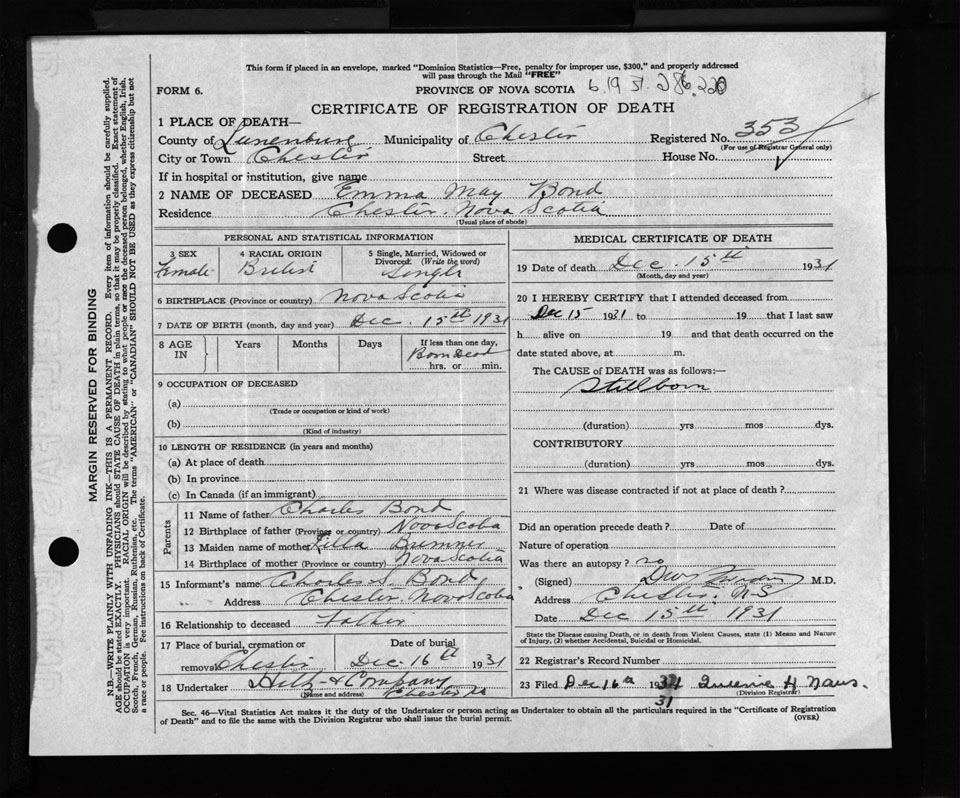 This form if placed in an envelope, marked "Dominion Statistics—Free, penalty for improper use, $300," and properly addressed
will pass through the Mail "FREE"
FORM 6. PROVINCE OF NOVA SCOTIA 6.19 31.286.220
CERTIFICATE OF REGISTRATION OF DEATH
1 PLACE OF DEATH—
County of Lunenburg Municipality of Chester Registered No. 353
(For use of Registrar General only)
City or Town Chester Street House No.
If in hospital or institution, give name
2 NAME OF DECEASED Emma May Bond
Residence Chester. Nova Scotia
(Usual place of abode)
PERSONAL AND STATISTICAL INFORMATION
3 SEX 4 RACIAL ORIGIN 5 Single, Married, Widowed or
Divorced. (Write the word)
Female British Single
6 BIRTHPLACE (Province or country) Nova Scotia
7 DATE OF BIRTH (month, day and year) Dec. 15th 1931
8 AGE IN Years Months Days If less than one day,
Born Dead
hrs. or min.
9 OCCUPATION OF DECEASED
(a)
(Trade or occupation or kind of work)
(b)
(Kind of industry)
10 LENGTH OF RESIDENCE (in years and months)
(a) At place of death
(b) In province
(c) In Canada (if an immigrant)
Parents
11 Name of father Charles Bond
12 Birthplace of father (Province or country) Nova Scotia
13 Maiden name of mother Lilla Bremner
14 Birthplace of mother (Province or country) Nova Scotia
15 Informant's name Charles S. Bond
Address Chester Nova Scotia
16 Relationship to deceased Father
17 Place of burial, cremation or Date of burial
removal Chester Dec. 16th 1931
18 Undertaker & Company
(Name and address) Chester NS
MEDICAL CERTIFICATE OF DEATH
19 Date of death Dec. 15th 1931
(Month, day and year)
20 I HEREBY CERTIFY that I attended deceased from
Dec 15 1931 to 19 that I last saw
h alive on 19 and that death occurred on the
date stated above, at m.
The CAUSE of DEATH was as follows:—
Stillborn
(duration) yrs mos dys.
CONTRIBUTORY
(duration) yrs mos dys.
21 Where was disease contracted if not at place of death?
Did an operation precede death? Date of
Nature of operation
Was there an autopsy? no
(Signed) M.D.
Address Chester. N-S
Date Dec 15th 1931
State the Disease causing Death, or in death from Violent Causes, state (1) Means and Nature
of Injury, (2) whether Accidental, Suicidal or Homicidal.
22 Registrar's Record Number
23 Filed Dec 16 19 31 H
(Division Registrar)
Sec. 46—Vital Statistics Act makes it the duty of the Undertaker or person acting as Undertaker to obtain all the particulars required in the "Certificate of Registration
of Death" and to file the same with the Division Registrar who shall issue the burial permit. (OVER)
MARGIN RESERVED FOR BINDING
N.B.—WRITE PLAINLY WITH UNFADING INK—THIS IS A PERMANENT RECORD. Every item of information should be carefully supplied.
AGE should be stated EXACTLY. PHYSICIANS should STATE CAUSE OF DEATH in plain terms, so that it may be properly classified. Exact statement of
OCCUPATION is very important. RACIAL ORIGIN will be described by stating to what people or race the deceased person belonged, whether English, Irish,
Scotch, French, German, Russian, Ruthenian, etc. The terms "AMERICAN" or "CANADIAN" SHOULD NOT BE USED as they express citizenship but not
a race or people. See instructions on back of Certificate.